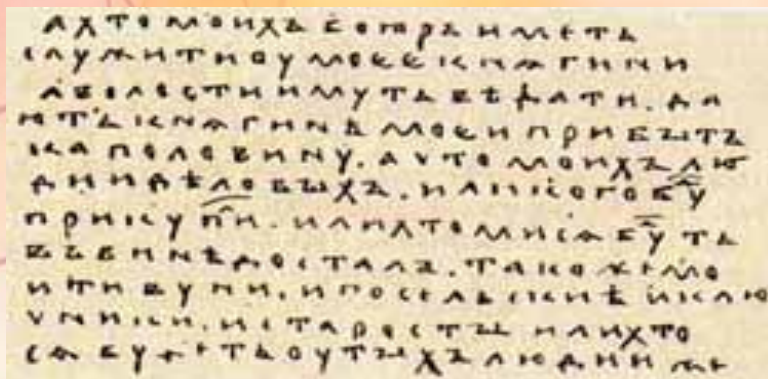 а хто моихъ бояръ иметь
служити оу моее кнѧгини
а волости имуть вѣдати. да
ють кнѧгинѣ моеи прибытъ
ка половину. а что моихъ лю
дии дѣловыхъ. или кого буⷣу
прикупиⷧ. или хто ми сѧ буⷣть
въ винѣ досталъ. такоже мо
и тивуни. и посельскиѣ и клю
чники. и старосты или хто
сѧ будеть оу тыхъ людии же